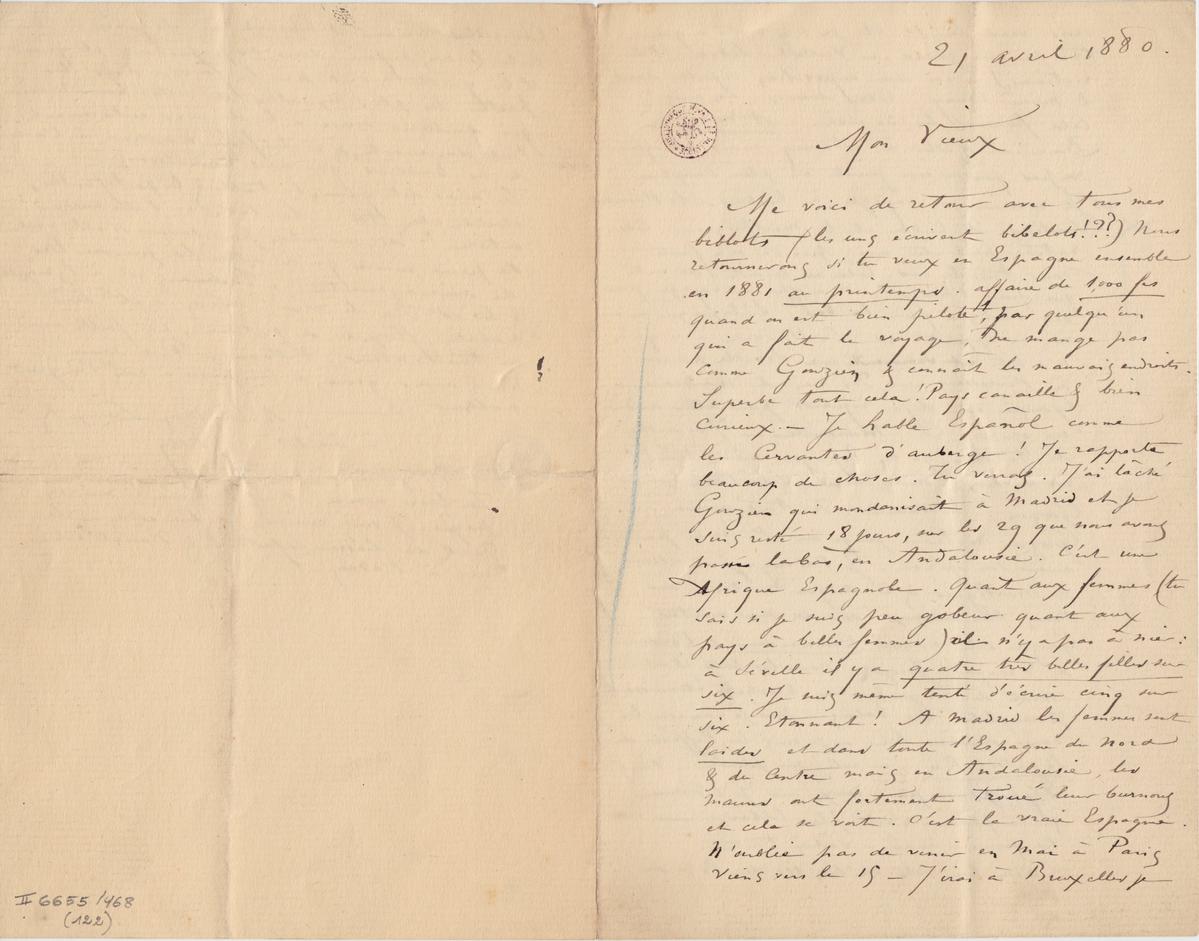 21 avril 1880.
Mon Vieux
Me voici de retour avec tous mes
biblots (les uns écrivent bibelots!??) Nous
retournerons si tu veux en Espagne ensemble
en 1881 au printemps. affaire de 1,000 frs
quand on est bien piloté, par quelqu'un
qui a fait le voyage, ne mange pas
comme Gouzien & connait les mauvais endroits.
Superbe tout cela! Pays canaille & bien
curieux. — Je hable Español comme
les Cervantes d'auberge! Je rapporte
beaucoup de choses. Tu verras. J'ai lâché
Gouzien qui mondanisait à Madrid et je
suis resté 18 jours, sur les 29 que nous avons
passés labas, en Andalousie. C'est une
Afrique Espagnole. Quant aux femmes (tu
sais si je suis peu gobeur quant aux
pays à belles femmes) il n'y a pas à nier:
à Séville il y a quatre très belles filles sur
six. Je suis même tenté d'écrire cinq sur
six. Etonnant! A Madrid les femmes sont
laides et dans toute l'Espagne du Nord
& du Centre mais en Andalousie, les
maures ont fortement troué leur burnous
et cela se voit. C'est la vraie Espagne.
N'oublie pas de venir en Mai à Paris
Viens vers le 15 — J'irai à Bruxelles je
II 6655/468
(122)